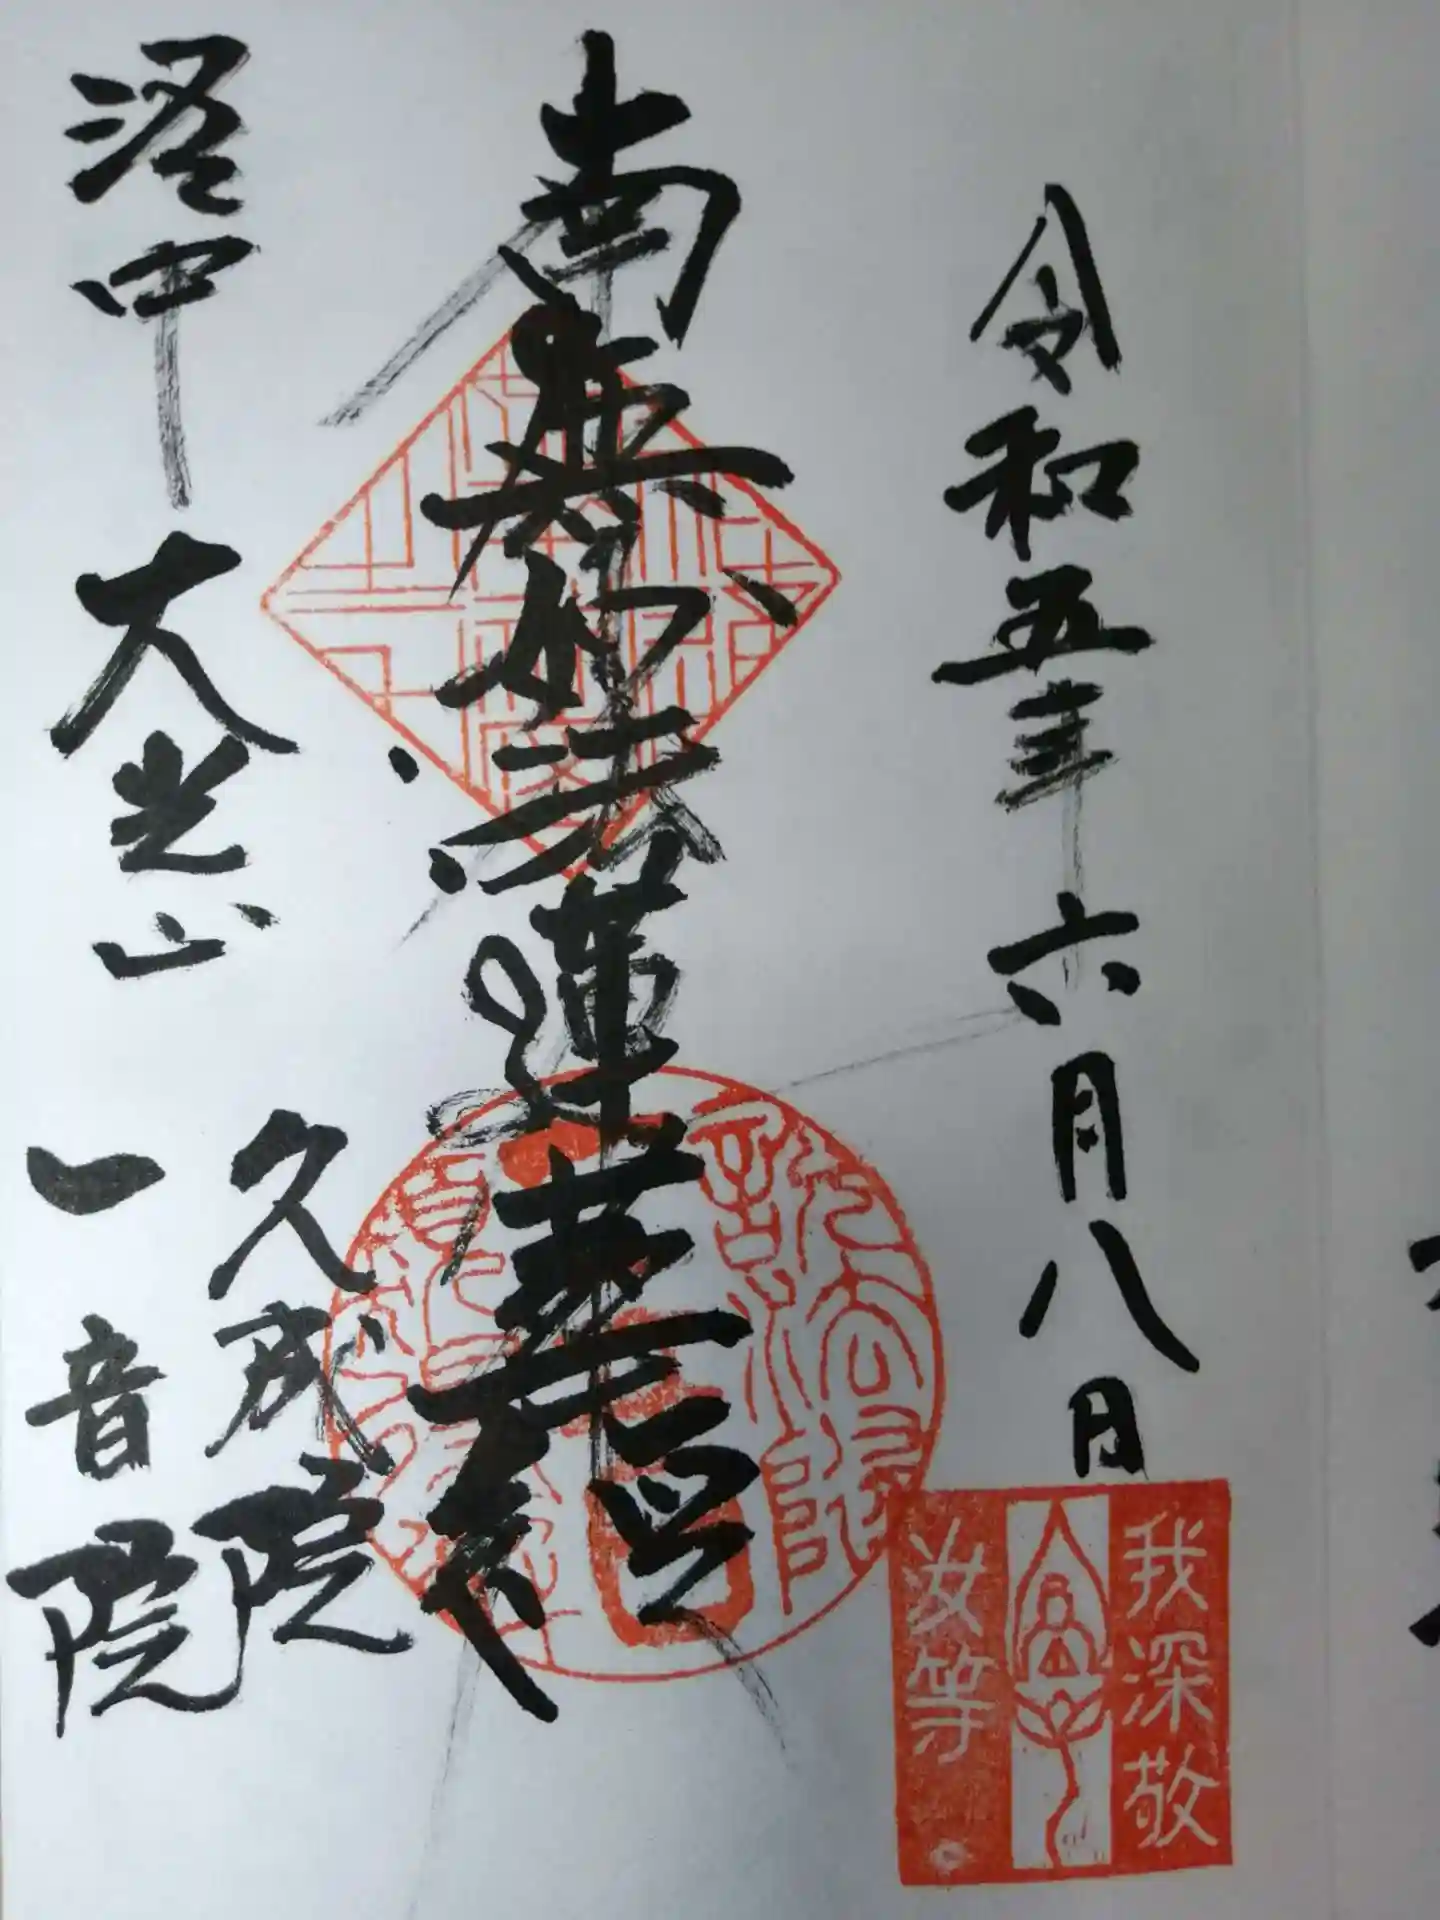 令和五年六月八日
我深敬
汝等
南無妙法蓮華経
洛中 大光山
久成院
一音院